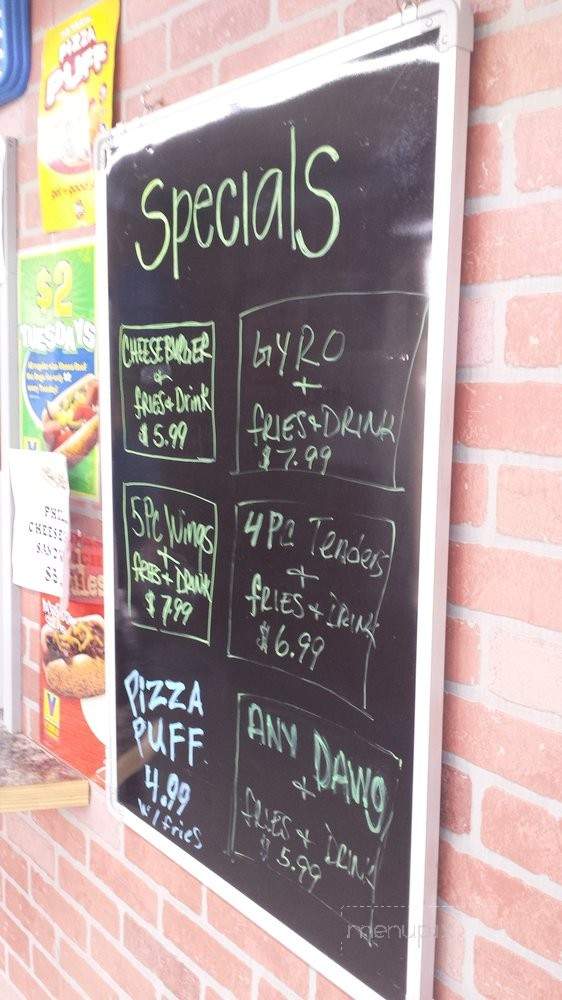 PIZZA
PUFF
$2
TUESDAYS
PHIL
CHEESE
SANDW
Specials
CHEESE BURGER
+
FRIES + Drink
$5.99
GYRO
+
FRIES + DRINK
$7.99
5Pc Wings
+
FRIES + DRINK
$7.99
4Pc Tenders
+
FRIES + DRINK
$6.99
PIZZA
PUFF
4.99
w/ fries
ANY DAWG
+
FRIES + DRINK
$5.99
menup